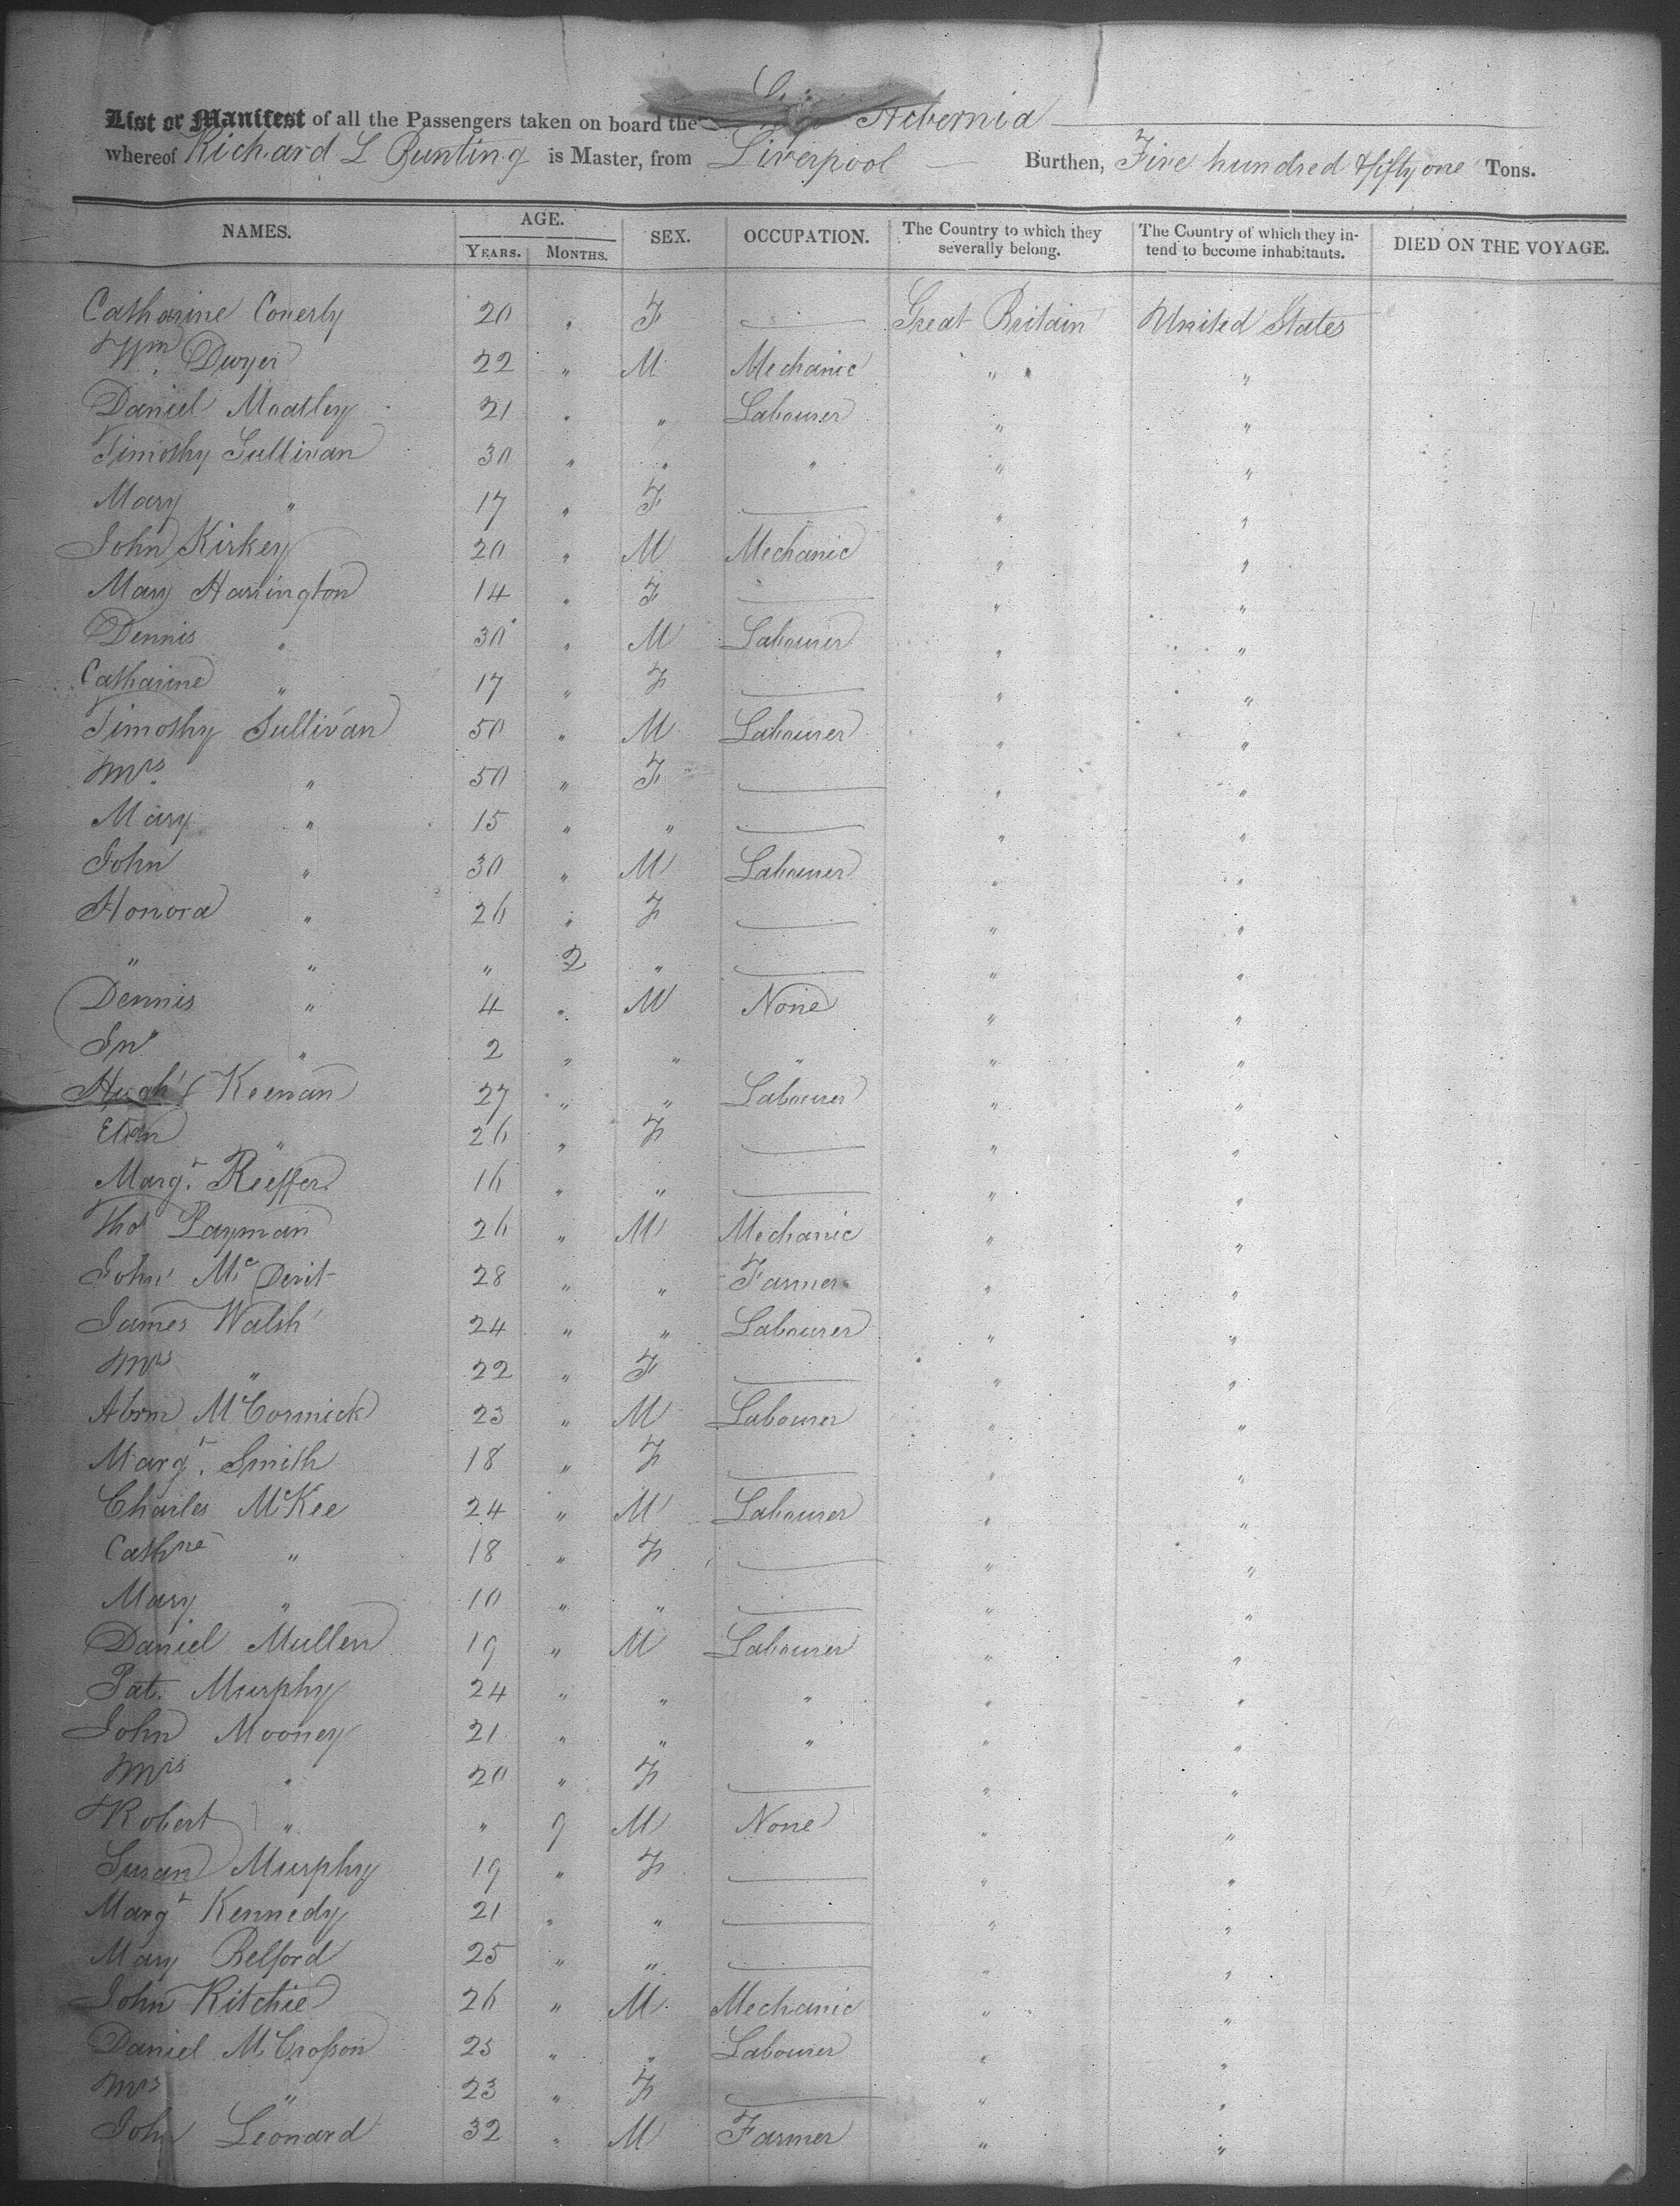 List or Manifest of all the Passengers taken on board the Hibernia
whereof Richard L Bunting is Master, from Liverpool Burthen, Five hundred & fifty one Tons.
NAMES. AGE. SEX. OCCUPATION. The Country to which they severally belong. The Country of which they intend to become inhabitants. DIED ON THE VOYAGE.
YEARS. MONTHS.
Catharine Conerly 20 " F — Great Britain United States
Wm. Dwyer 22 " M Mechanic " "
Daniel Moatley 21 " " Labourer " "
Timothy Sullivan 30 " " " " "
Mary " 17 " F — " "
John Kirkey 20 " M Mechanic " "
Mary Harrington 14 " F — " "
Dennis " 30 " M Labourer " "
Catharine " 17 " F — " "
Timothy Sullivan 50 " M Labourer " "
Mrs. " 50 " F — " "
Mary " 15 " " — " "
John " 30 " M Labourer " "
Honora " 26 " F — " "
" " " 2 " — " "
Dennis " 4 " M None " "
Jno " 2 " " " " "
Hugh Keenan 27 " " Labourer " "
Ellen " 26 " F — " "
Margt. Reeffer 16 " " — " "
Thos Layman 26 " M Mechanic " "
John McDevit 28 " " Farmer " "
James Walsh 24 " " Labourer " "
Mrs " 22 " F — " "
Abrm McCormick 23 " M Labourer " "
Margt. Smith 18 " F — " "
Charles McKee 24 " M Labourer " "
Cathne " 18 " F — " "
Mary " 10 " " — " "
Daniel Mullen 19 " M Labourer " "
Pat. Murphy 24 " " " " "
John Mooney 21 " " " " "
Mrs " 20 " F — " "
Robert " " 9 M None " "
Susan Murphy 19 " F — " "
Margt Kennedy 21 " " — " "
Mary Belford 25 " " — " "
John Ritchie 26 " M Mechanic " "
Daniel McCrosson 25 " " Labourer " "
Mrs " 23 " F — " "
John Leonard 32 " M Farmer " "